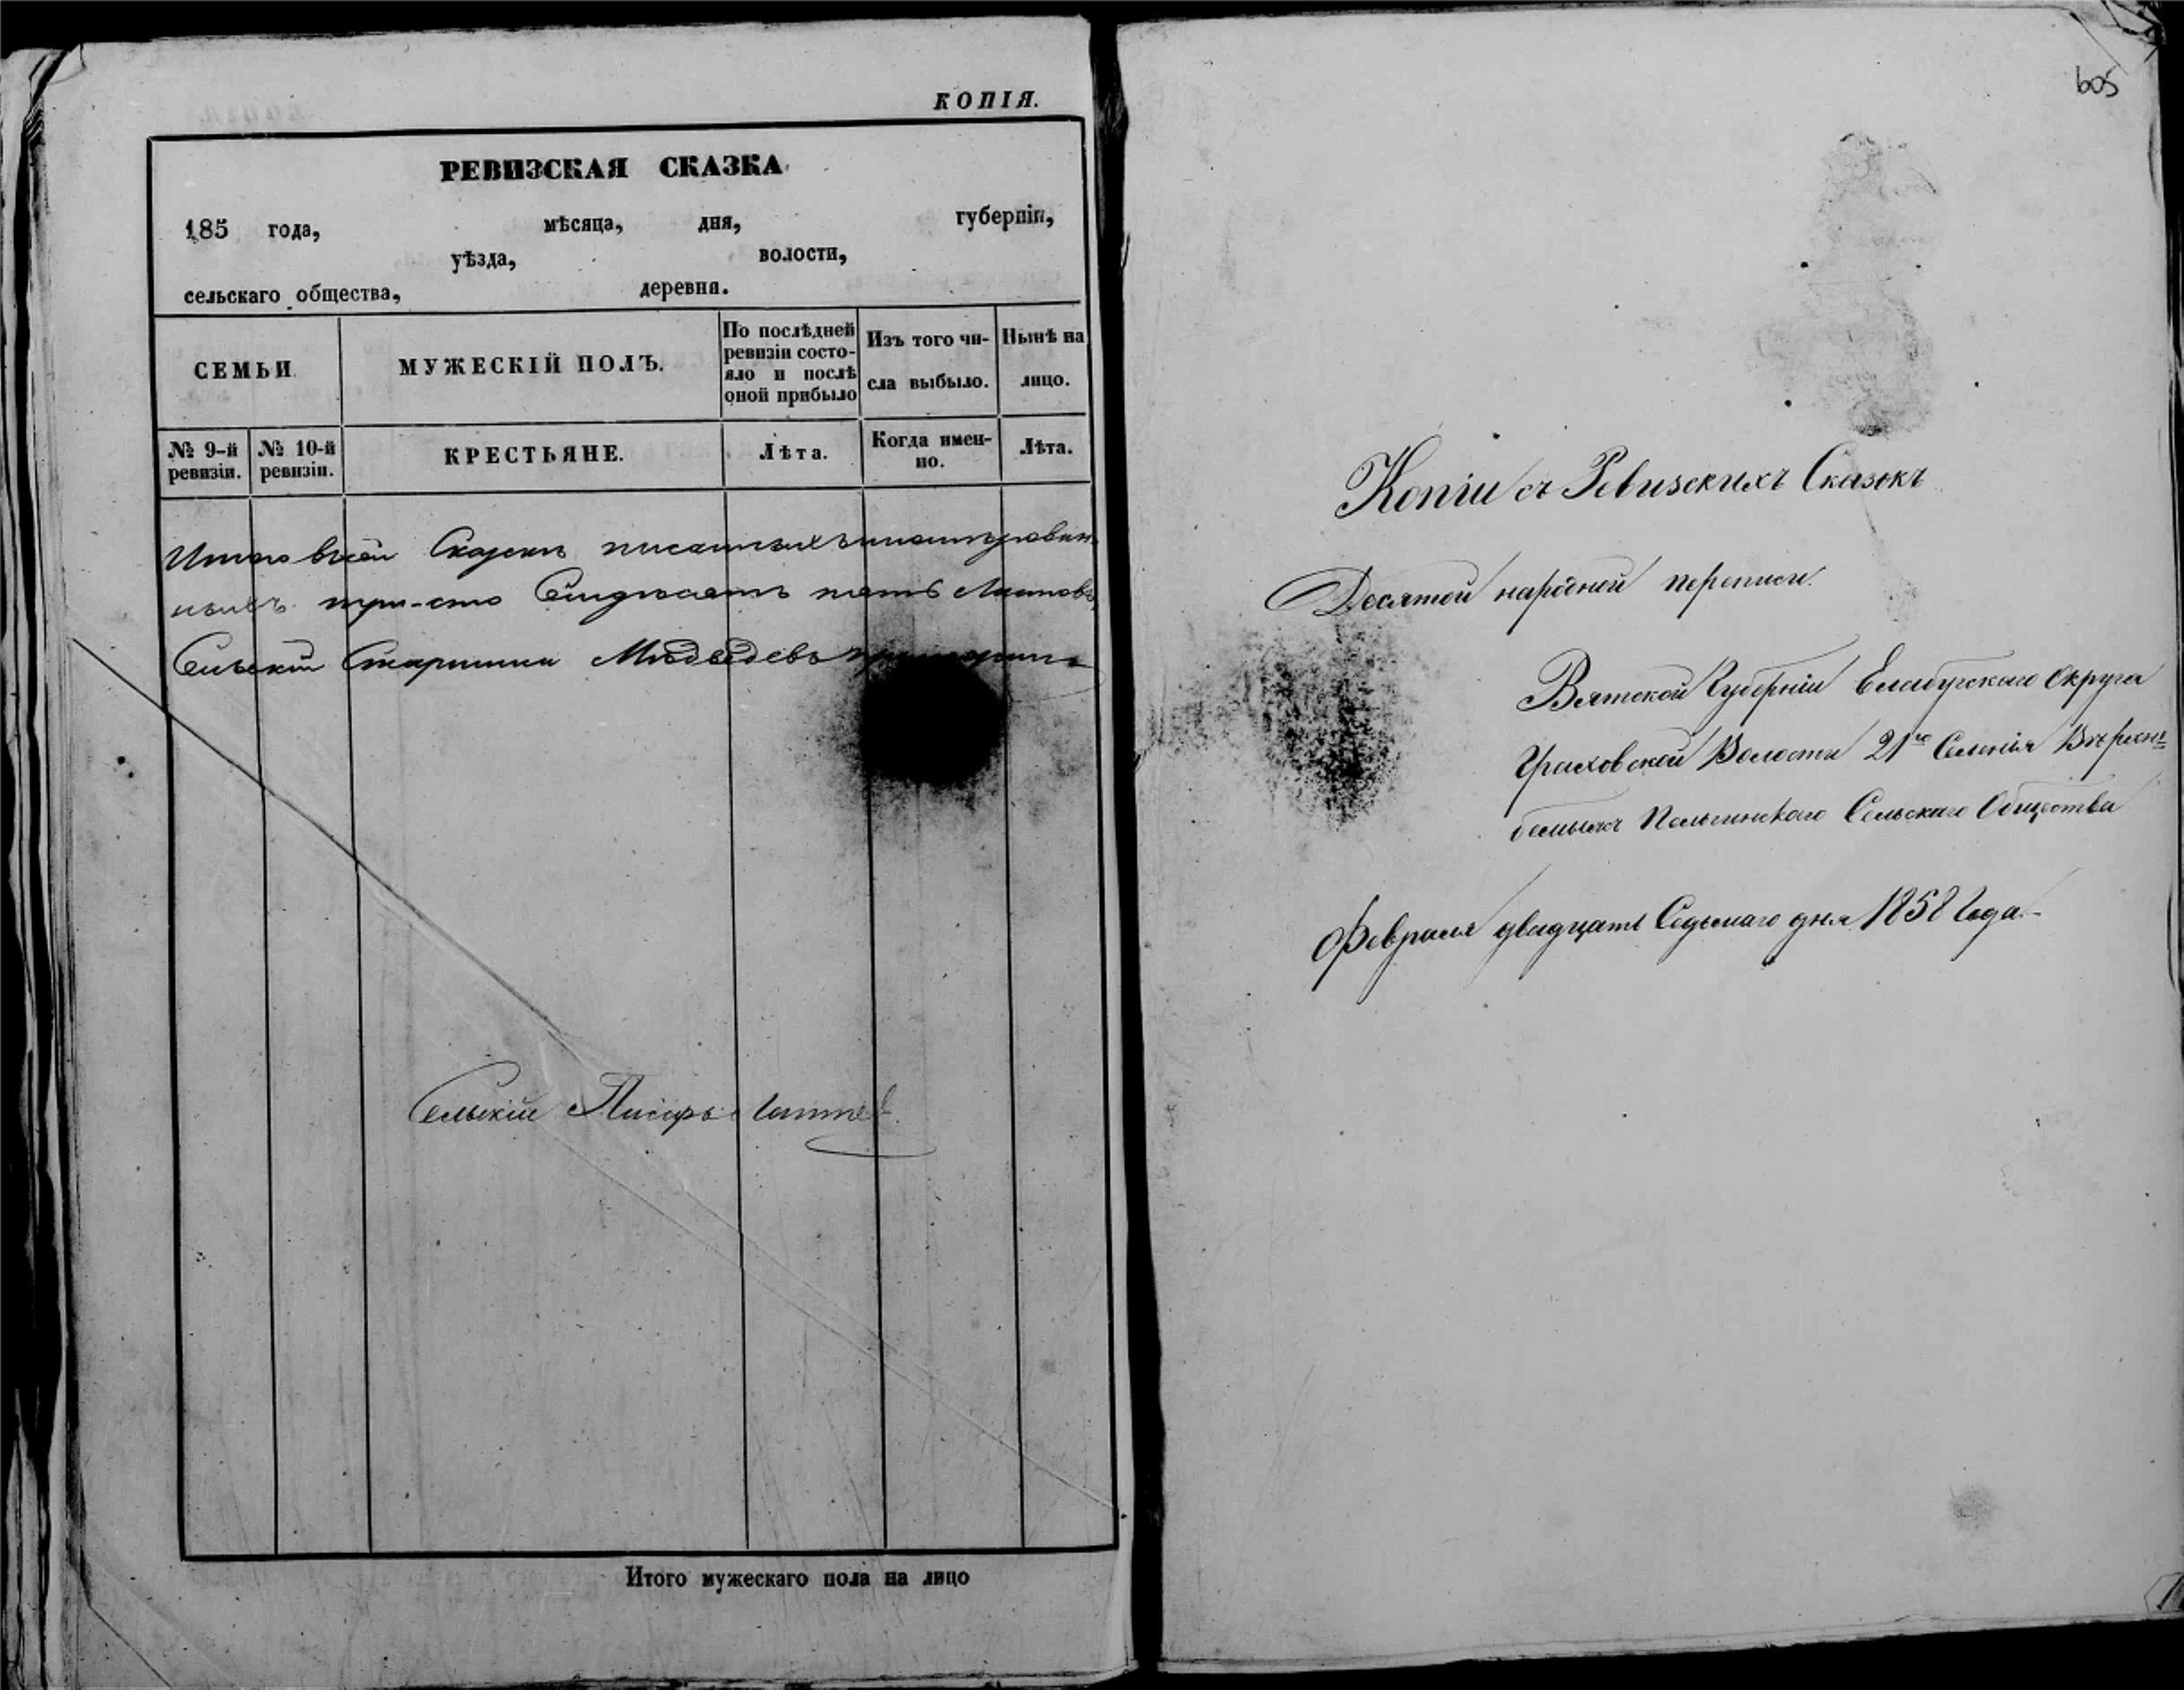 КОПІЯ.
РЕВИЗСКАЯ СКАЗКА
185 года, мѣсяца, дня, губерніи,
уѣзда, волости,
сельскаго общества, деревни.
СЕМЬИ.
МУЖЕСКІЙ ПОЛЪ.
По послѣдней
ревизіи состо-
яло и послѣ
оной прибыло
Изъ того чи-
сла выбыло.
Нынѣ на
лицо.
№ 9-й
ревизіи.
№ 10-й
ревизіи.
КРЕСТЬЯНЕ.
Лѣта.
Когда имен-
но.
Лѣта.
Итого всей Скаски писанныхъ
ныхъ три-сто Семдесятъ пять Листовъ,
Сельскій Старшина Медведевъ
Сельскій Писарь
Итого мужескаго пола на лицо
605
Копіи съ Ревизскихъ Сказокъ
Десятой народной переписи.
Вятской Губерніи Елабугскаго Округа
Граховской Волости 21го Селенія
Сельскаго Общества
Февраля двадцать Седьмаго дня 1858 Года.